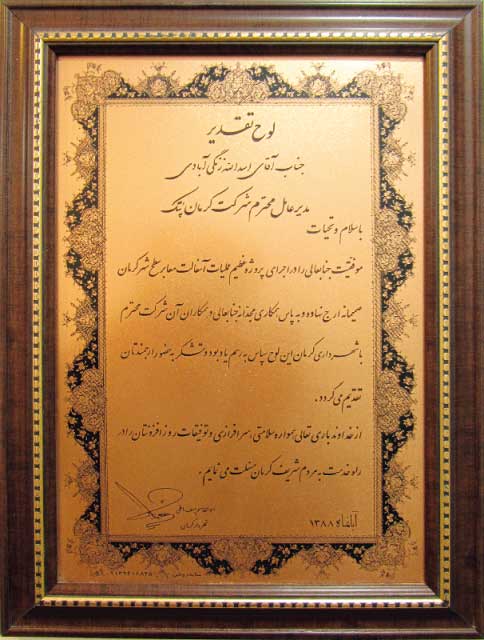 لوح تقدیر
جناب آقای اسدالله زنگی آبادی
مدیر عامل محترم شرکت کرمان پتک
با سلام و تحیات
موفقیت جنابعالی را در اجرای پروژه عظیم عملیات آسفالت معابر سطح شهر کرمان
صمیمانه ارج نهاده و به پاس همکاری مجدانه جنابعالی و همکاران آن شرکت محترم
با شهرداری کرمان این لوح سپاس به رسم یادبود و تشکر به حضور ارجمندتان
تقدیم می گردد.
از خداوند باری تعالی همواره سلامتی، سرافرازی و توفیقات روزافزونتان را در
راه خدمت به مردم شریف کرمان مسئلت می نمایم.
ابوالقاسم سیف الهی
شهردار کرمان
آبانماه ۱۳۸۸